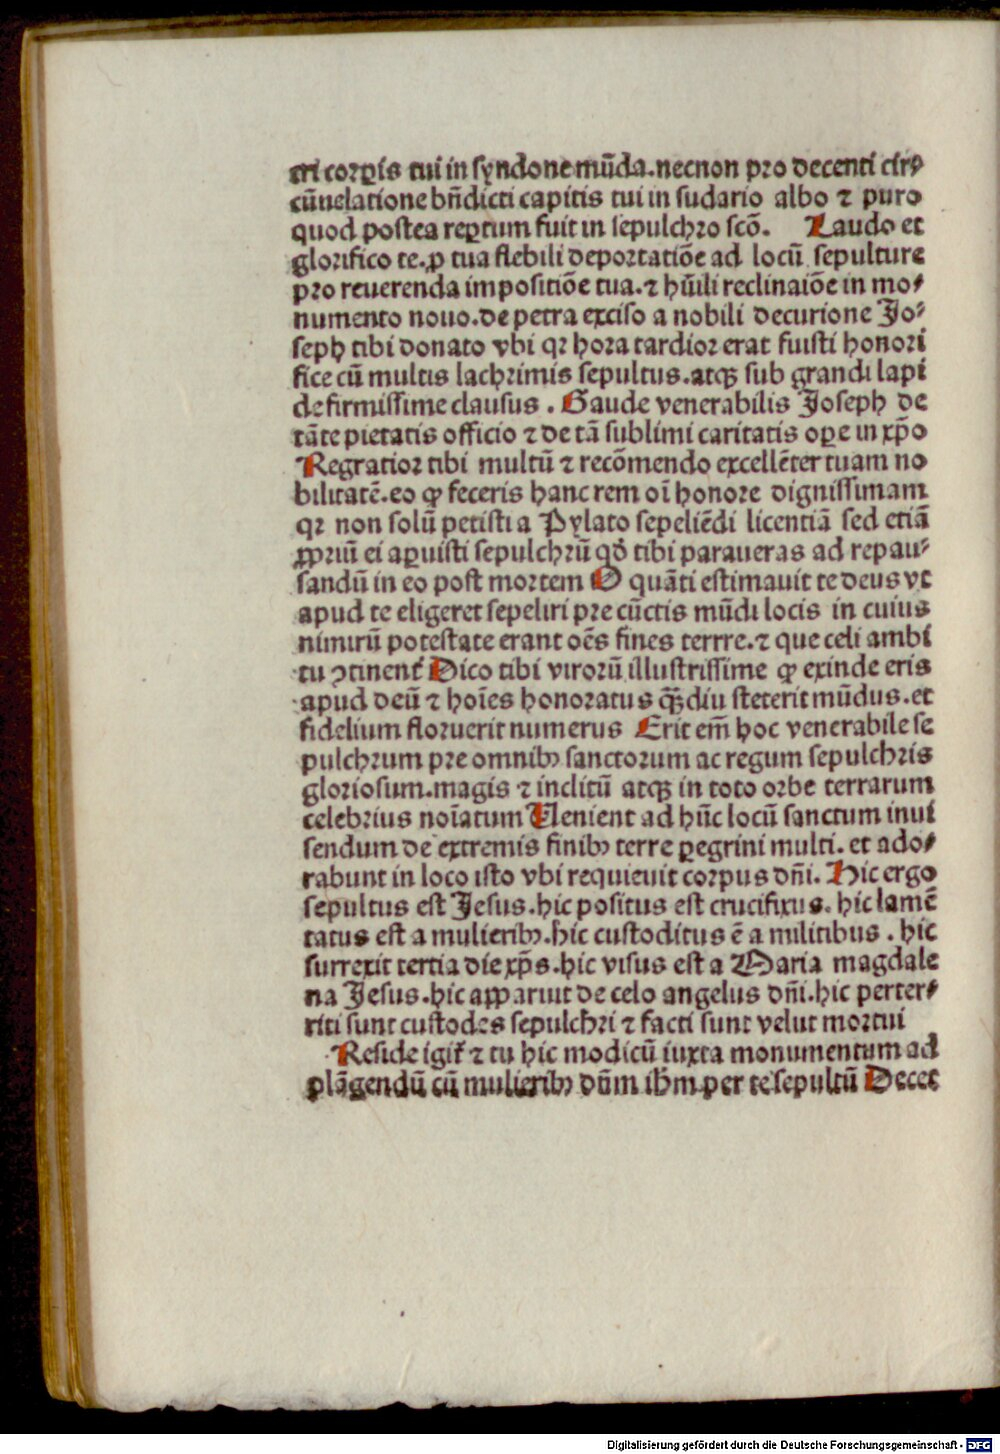 cri corꝑis tui in syndone mūda.necnon pro decenti cir⸗
cūuelatione bn̄dicti capitis tui in sudario albo ⁊ puro
quod postea reꝑtum fuit in sepulchro scō. Laudo et
glorifico te.ꝓ tua flebili deportatiōe ad locū sepulture
pro reuerenda impositiōe tua.⁊ hūili reclinaiōe in mo⸗
numento nouo.de petra exciso a nobili decurione Jo⸗
seph tibi donato vbi qr hora tardior erat fuisti honori
fice cū multis lachrimis sepultus.atqꝫ sub grandi lapi
de firmissime clausus . Gaude venerabilis Joseph de
tāte pietatis officio ⁊ de tā sublimi caritatis oꝑe in xp̄o
Regratior tibi multū ⁊ recōmendo excellēter tuam no
bilitatē.eo ꝙ feceris hanc rem oī honore dignissimam
qr non solū petisti a Pylato sepeliēdi licentiā sed etiā
ꝓpriū ei aꝑuisti sepulchrū qd̄ tibi paraueras ad repau⸗
sandū in eo post mortem O quāti estimauit te deus vt
apud te eligeret sepeliri pre cūctis mūdi locis in cuius
nimirū potestate erant oēs fines terrre.⁊ que celi ambi
tu ꝯtinent᷑ Dico tibi virorū illustrissime ꝙ exinde eris
apud deū ⁊ hoīes honoratus qꝫ̄diu steterit mūdus.et
fidelium floruerit numerus Erit em̄ hoc venerabile se
pulchrum pre omnibꝫ sanctorum ac regum sepulchris
gloriosum.magis ⁊ inclitū atqꝫ in toto orbe terrarum
celebrius noīatum Uenient ad hūc locū sanctum inui
sendum de extremis finibꝫ terre ꝑegrini multi. et ado⸗
rabunt in loco isto vbi requieuit corpus dn̄i. Hic ergo
sepultus est Jesus.hic positus est crucifixus. hic lamē
tatus est a mulieribꝫ.hic custoditus ē a militibus . hic
surrexit tertia die xp̄s.hic visus est a Maria magdale
na Jesus.hic apparuit de celo angelus dn̄i.hic perter⸗
riti sunt custodes sepulchri ⁊ facti sunt velut mortui
Reside igit᷑ ⁊ tu hic modicū iuxta monumentum ad
plāgendū cū mulieribꝫ dn̄m ihm̄ per te sepultū Decet
Digitalisierung gefördert durch die Deutsche Forschungsgemeinschaft - DFG